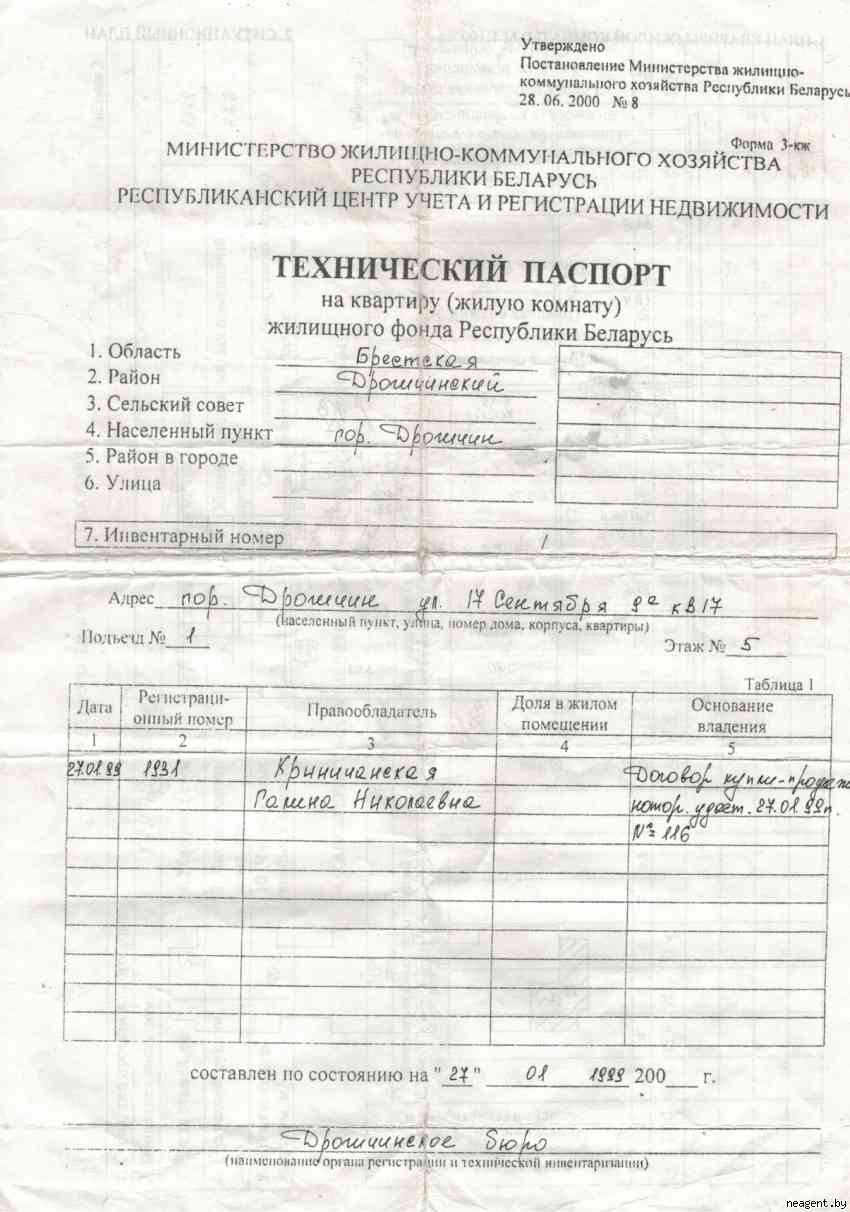 Утверждено
Постановление Министерства жилищно-
коммунального хозяйства Республики Беларусь
28. 06. 2000 № 8
Форма 3-кж
МИНИСТЕРСТВО ЖИЛИЩНО-КОММУНАЛЬНОГО ХОЗЯЙСТВА
РЕСПУБЛИКИ БЕЛАРУСЬ
РЕСПУБЛИКАНСКИЙ ЦЕНТР УЧЕТА И РЕГИСТРАЦИИ НЕДВИЖИМОСТИ
ТЕХНИЧЕСКИЙ ПАСПОРТ
на квартиру (жилую комнату)
жилищного фонда Республики Беларусь
1. Область Брестская
2. Район Дрогичинский
3. Сельский совет
4. Населенный пункт гор. Дрогичин
5. Район в городе
6. Улица
7. Инвентарный номер /
Адрес гор. Дрогичин ул. 17 Сентября 9а кв 17
(населенный пункт, улица, номер дома, корпуса, квартиры)
Подъезд № 1 Этаж № 5
Таблица 1
Дата Регистраци-онный номер Правообладатель Доля в жилом помещении Основание владения
1 2 3 4 5
27.01.99 1931 Криничанская Договор купли-продажи
Галина Николаевна нотор. удост. 27.01.99г.
№ 116
составлен по состоянию на "27" 01 1999 200 г.
Дрогичинское бюро
(наименование органа регистрации и технической инвентаризации)
neagent.by